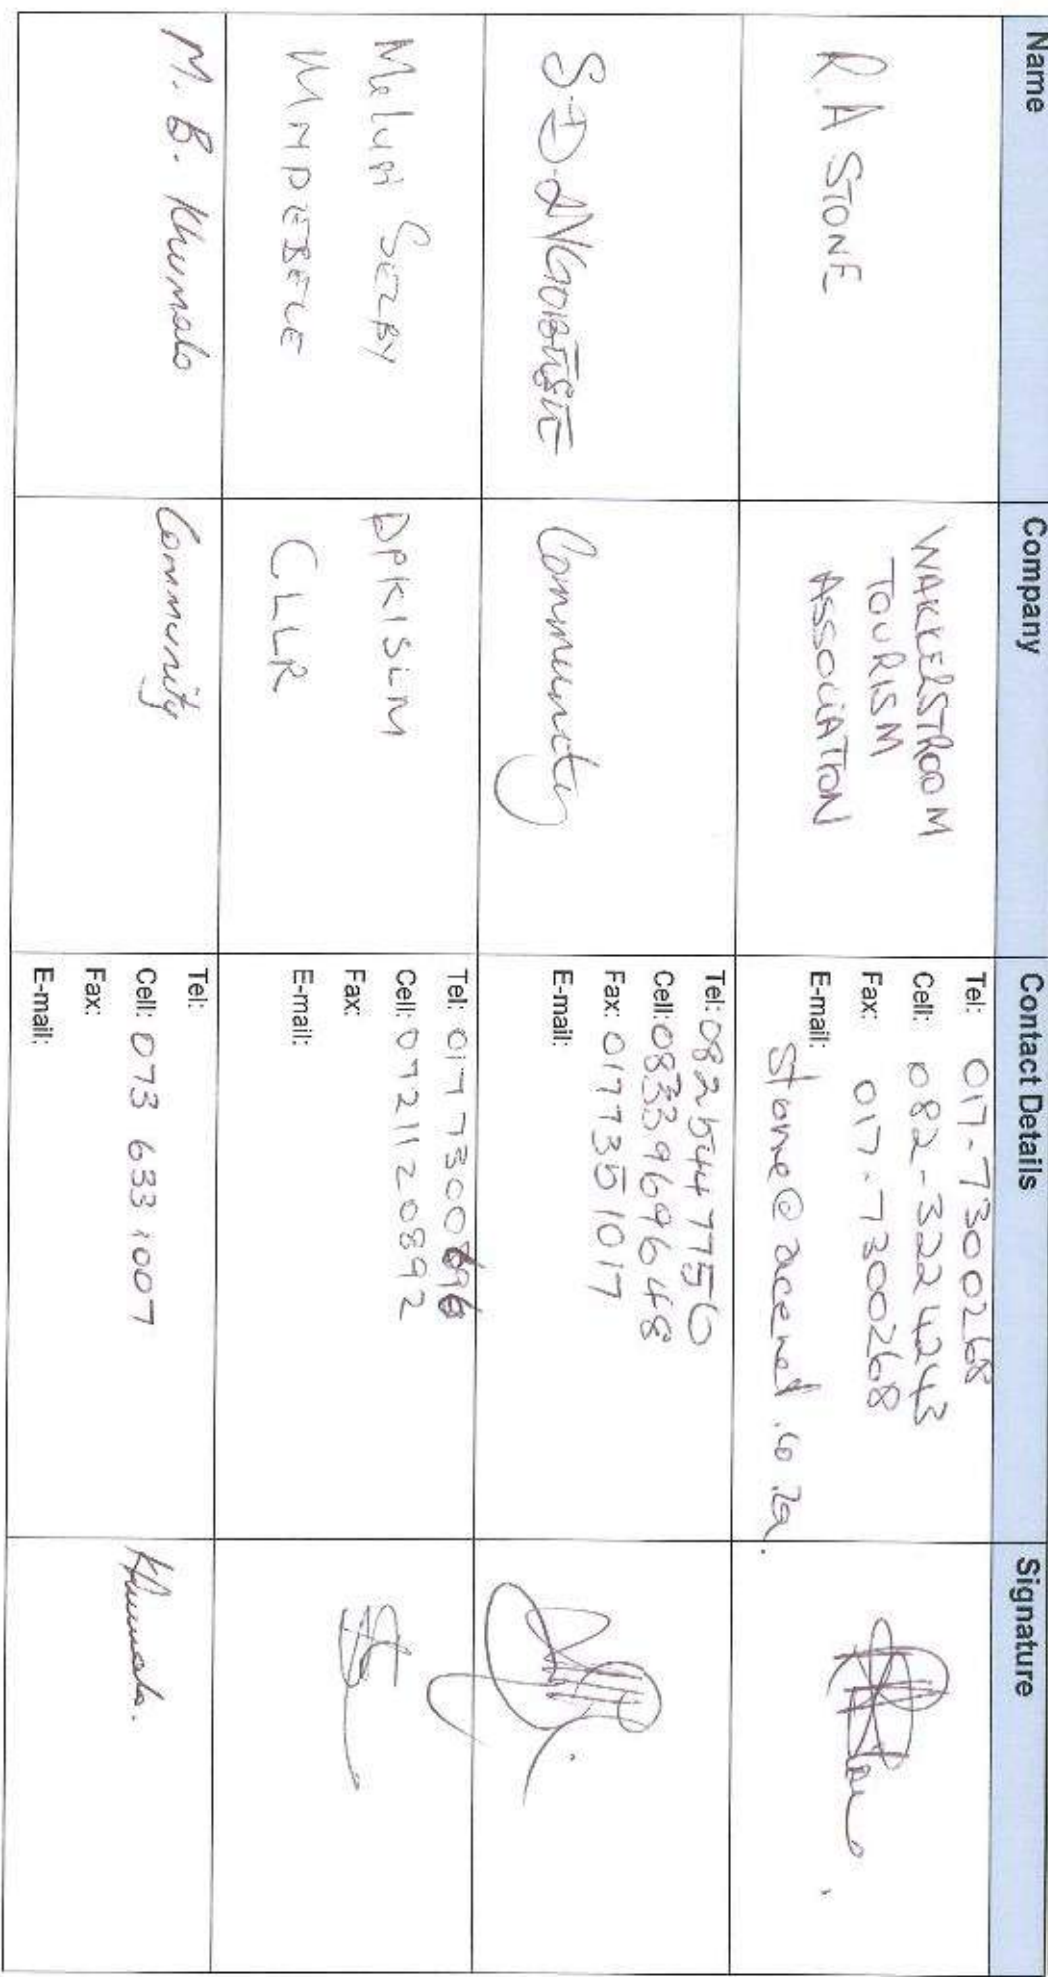 Name Company Contact Details Signature
R.A STONE
WAKKERSTROOM
TOURISM
ASSOCIATION
Tel: 017-7300268
Cell: 082-3224243
Fax: 017-7300268
E-mail:
stone@acenet.co.za.
Community
Tel: 0825447756
Cell: 0833969648
Fax: 0177351017
E-mail:
SELBY
DPKISLM
CLLR
Tel: 017 7300
Cell: 0721120892
Fax:
E-mail:
M. B. Khumalo
Community
Tel:
Cell: 073 633 1007
Fax:
E-mail:
Khumalo.